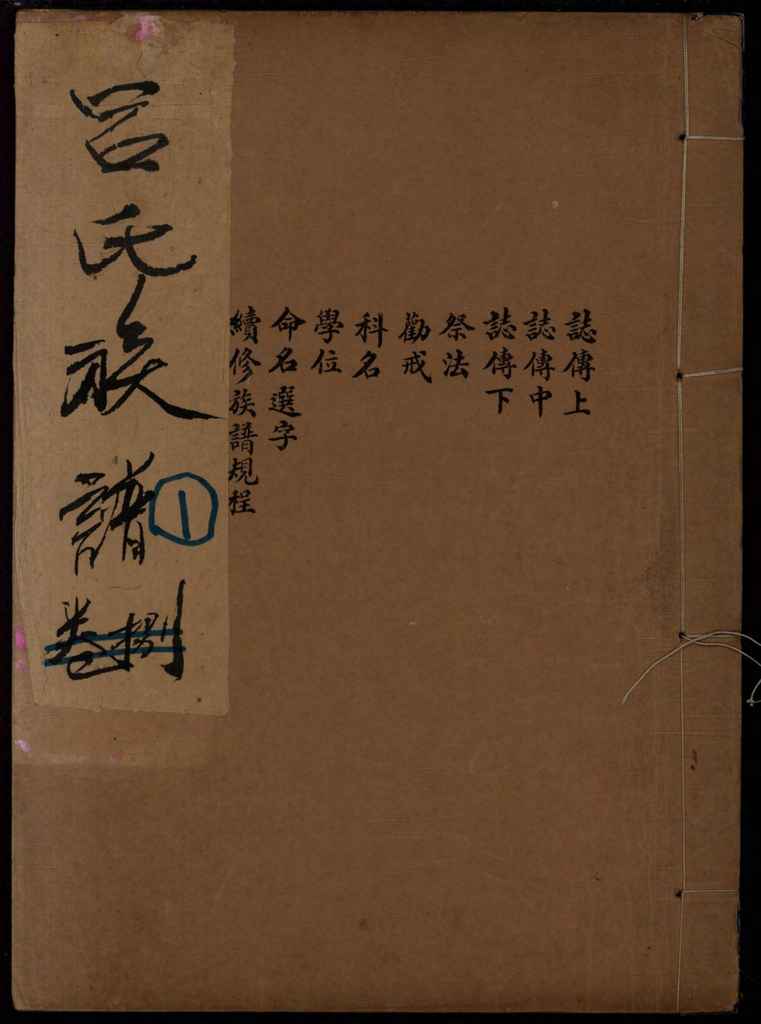 誌傳上
誌傳中
誌傳下
祭法
勸戒
科名
學位
命名選字
續修族譜規程
呂氏族譜
1
卷捌